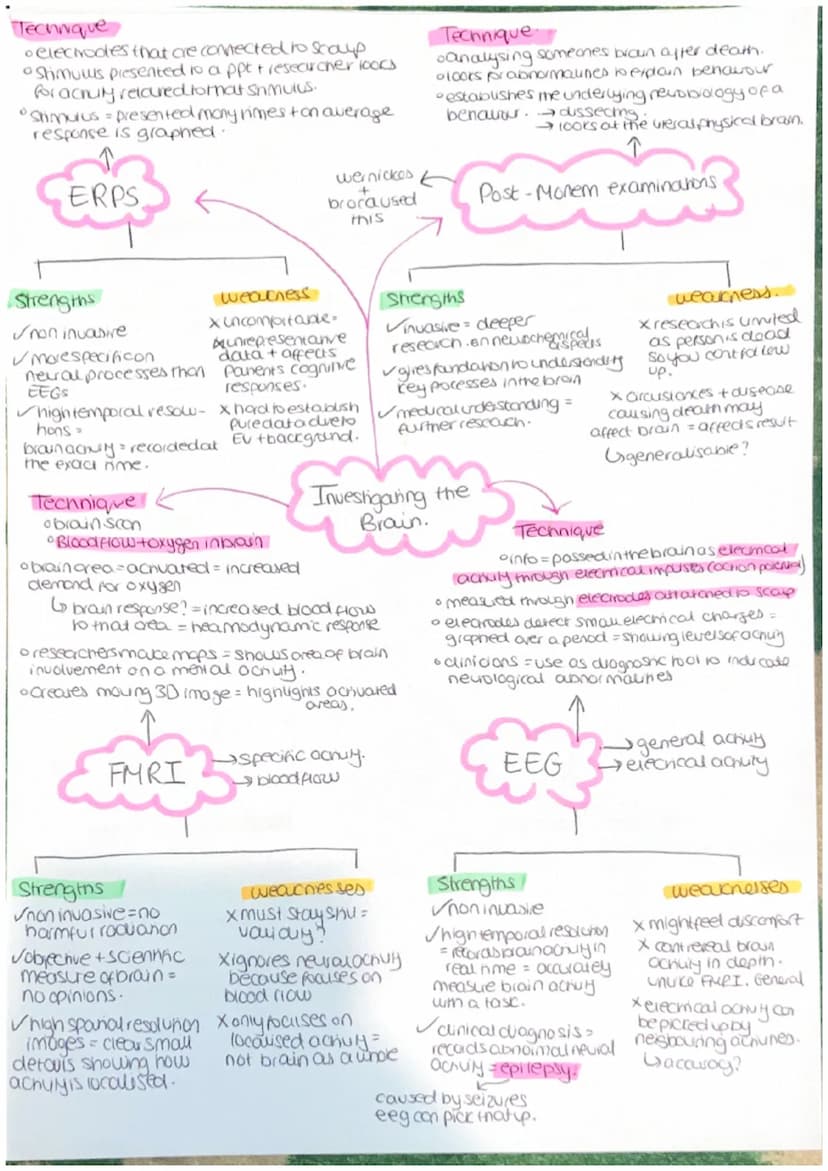 Technique
electrodes that are connected to scalp
stimulus presented to a ppt + researcher looks
for activity related to that stimulus.
stimulus = presented many times + an average
response is graphed.
ERPS
Strengths
✓non invasive
✓more specific on
neural processes than
EEGs
✓high temporal resolu-
tions =
brain activity = recorded at
the exact time.
weakness
x uncomfortable =
unrepresentative
data + affects
patients cognitive
responses.
x hard to establish
pure data due to
EV + background.
Technique
analysing someones brain after death.
looks for abnormalities to explain behaviour
establishes the underlying neurobiology of a
behaviour. → dissecting.
→ looks at the literal physical brain.
Post-Mortem examinations
wernickes
+
broca used
this
Strengths
✓invasive = deeper
research on neurochemical
aspects
✓gives foundation to understanding
key processes in the brain
✓medical understanding =
further research.
weakness.
x research is limited
as person is dead
so you cant follow
up.
x circustances + disease
causing death may
affect brain = affects result
↳generalisable?
Investigating the
Brain.
Technique
brain scan
Blood flow + oxygen in brain
brain area = activated = increased
demand for oxygen
↳ brain response? = increased blood flow
to that area = heamodynamic response
researchers make maps = shows area of brain
involvement on a mental activity.
creates moving 3D image = highlights activated
areas.
FMRI
→specific activity.
→ blood flow
Strengths
✓non invasive = no
harmful radiation
✓objective + scientific
measure of brain =
no opinions.
✓high spatial resolution
images = clear small
details showing how
activity is localised.
weaknesses
x must stay still =
validity?
x ignores neural activity
because focuses on
blood flow
x only focuses on
localised activity =
not brain as a whole
Technique
info = passed in the brain as electrical
activity through electrical impulses (action potential)
measured through electrodes attatched to scalp
electrodes detect small electrical charges =
graphed over a period = showing levels of activity
clinicians = use as diagnostic tool to indicate
neurological abnormalities
EEG
→general activity
→electrical activity
Strengths
✓non invasive
✓high temporal resolution
= records brain activity in
real time = accurately
measure brain activity
with a task.
✓clinical diagnosis =
records abnormal neural
activity = epilepsy.
caused by seizures
eeg can pick that up.
weaknesses
x might feel discomfort
x cant reveal brain
activity in depth.
unlike FMRI. General
x electrical activity can
be picked up by
neighbouring activities.
↳accuracy?